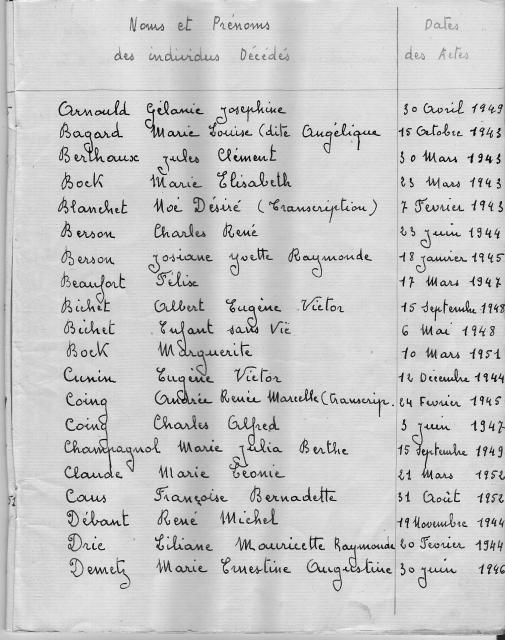 Noms et Prénoms Dates
des individus Décédés des Actes
Arnould Gélanie Joséphine 30 Avril 1949
Bagard Marie Louise (dite Angélique 15 Octobre 1943
Berthaux Jules Clément 30 Mars 1943
Bock Marie Elisabeth 23 Mars 1943
Blanchet Noé Désiré (Transcription) 7 Fevrier 1943
Berson Charles René 23 Juin 1944
Berson Josiane Yvette Raymonde 18 Janvier 1945
Beaufort Félix 17 Mars 1947
Bichet Albert Eugène Victor 15 Septembre 1948
Bichet Enfant sans Vie 6 Mai 1948
Bock Marguerite 10 Mars 1951
Cunin Eugène Victor 12 Décembre 1944
Coing Andrée Renée Marcelle (Transcrip. 24 Fevrier 1945
Coing Charles Alfred 3 Juin 1947
Champagnol Marie Julia Berthe 15 Septembre 1949
Claude Marie Léonie 21 Mars 1952
Caus Françoise Bernadette 31 Août 1952
Débant René Michel 19 Novembre 1944
Drie Liliane Mauricette Raymonde 20 Fevrier 1944
Demetz Marie Ernestine Augustine 30 Juin 1946